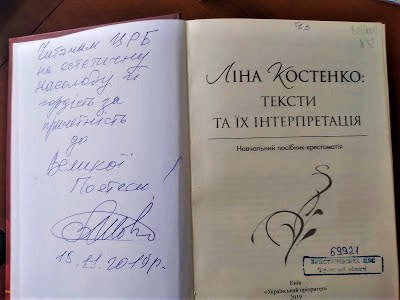 Читачам ЦРБ
на естетичну
насолоду й
гордість за
причетність
до
Великої
Поетеси!
15.11.2019р.
ЛІНА КОСТЕНКО:
ТЕКСТИ
ТА ЇХ ІНТЕРПРЕТАЦІЯ
Навчальний посібник-хрестоматія
69921
Київ
«Український пріоритет»
2019